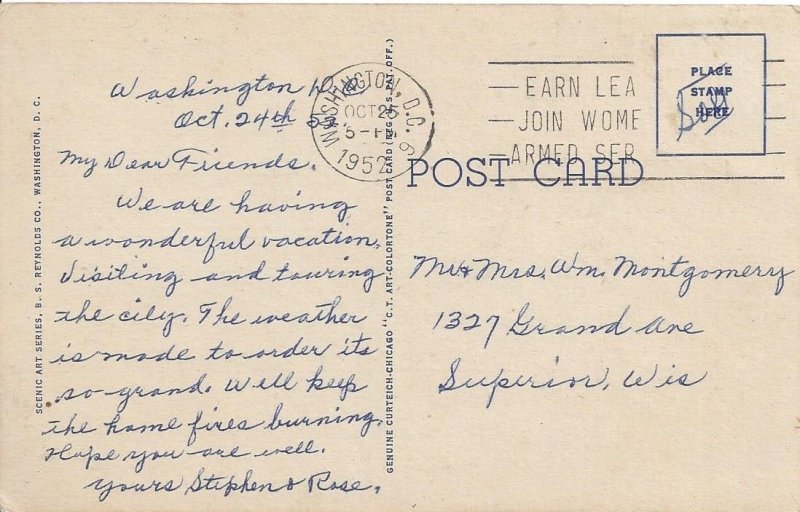 SCENIC ART SERIES, B. S. REYNOLDS CO., WASHINGTON, D. C.
Washington D.C.
Oct. 24th 52.
My Dear Friends.
We are having
a wonderful vacation,
Visiting and touring
the city. The weather
is made to order its
so grand. Well keep
the home fires burning.
Hope you are well.
Yours Stephen & Rose.
GENUINE CURTEICH-CHICAGO "C.T. ART-COLORTONE" POST CARD (REG. U.S. PAT. OFF.)
WASHINGTON, D.C. 6
OCT 25
5-PM
1952
EARN LEA
JOIN WOME
ARMED SER
PLACE
STAMP
HERE
POST CARD
Mr & Mrs. Wm. Montgomery
1327 Grand Ave
Superior, Wis